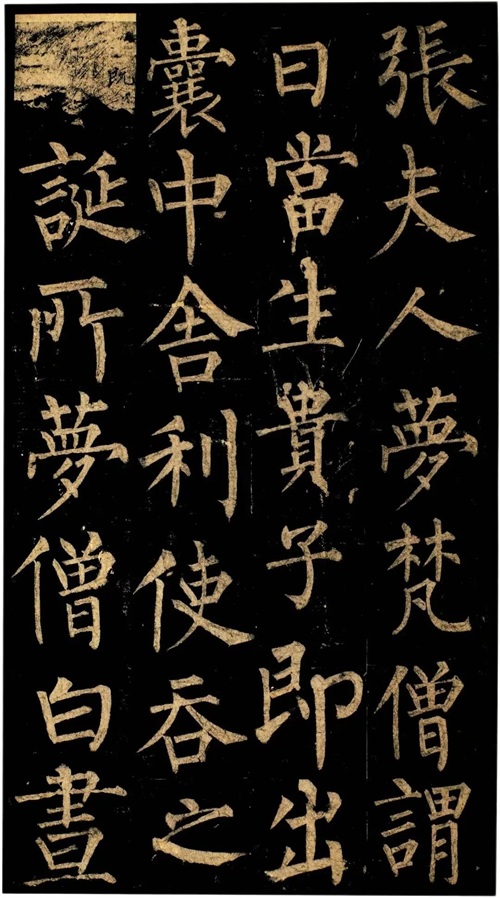 張夫人夢梵僧謂
曰當生貴子即出
囊中舍利使吞之
既誕所夢僧白晝